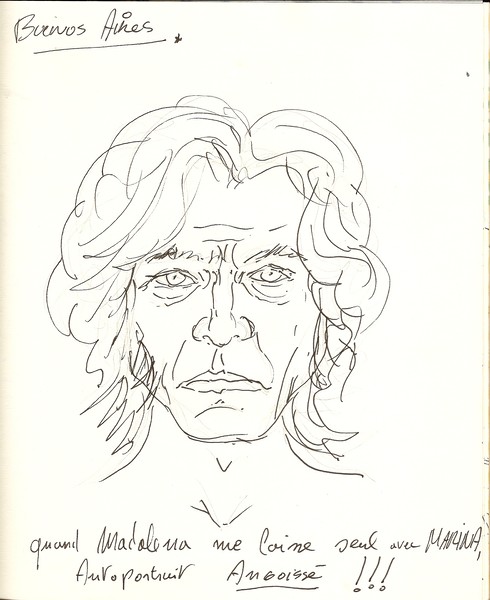 Buenos Aires
quand Madalena me laisse seul avec MARINA,
Autoportrait Angoissé !!!